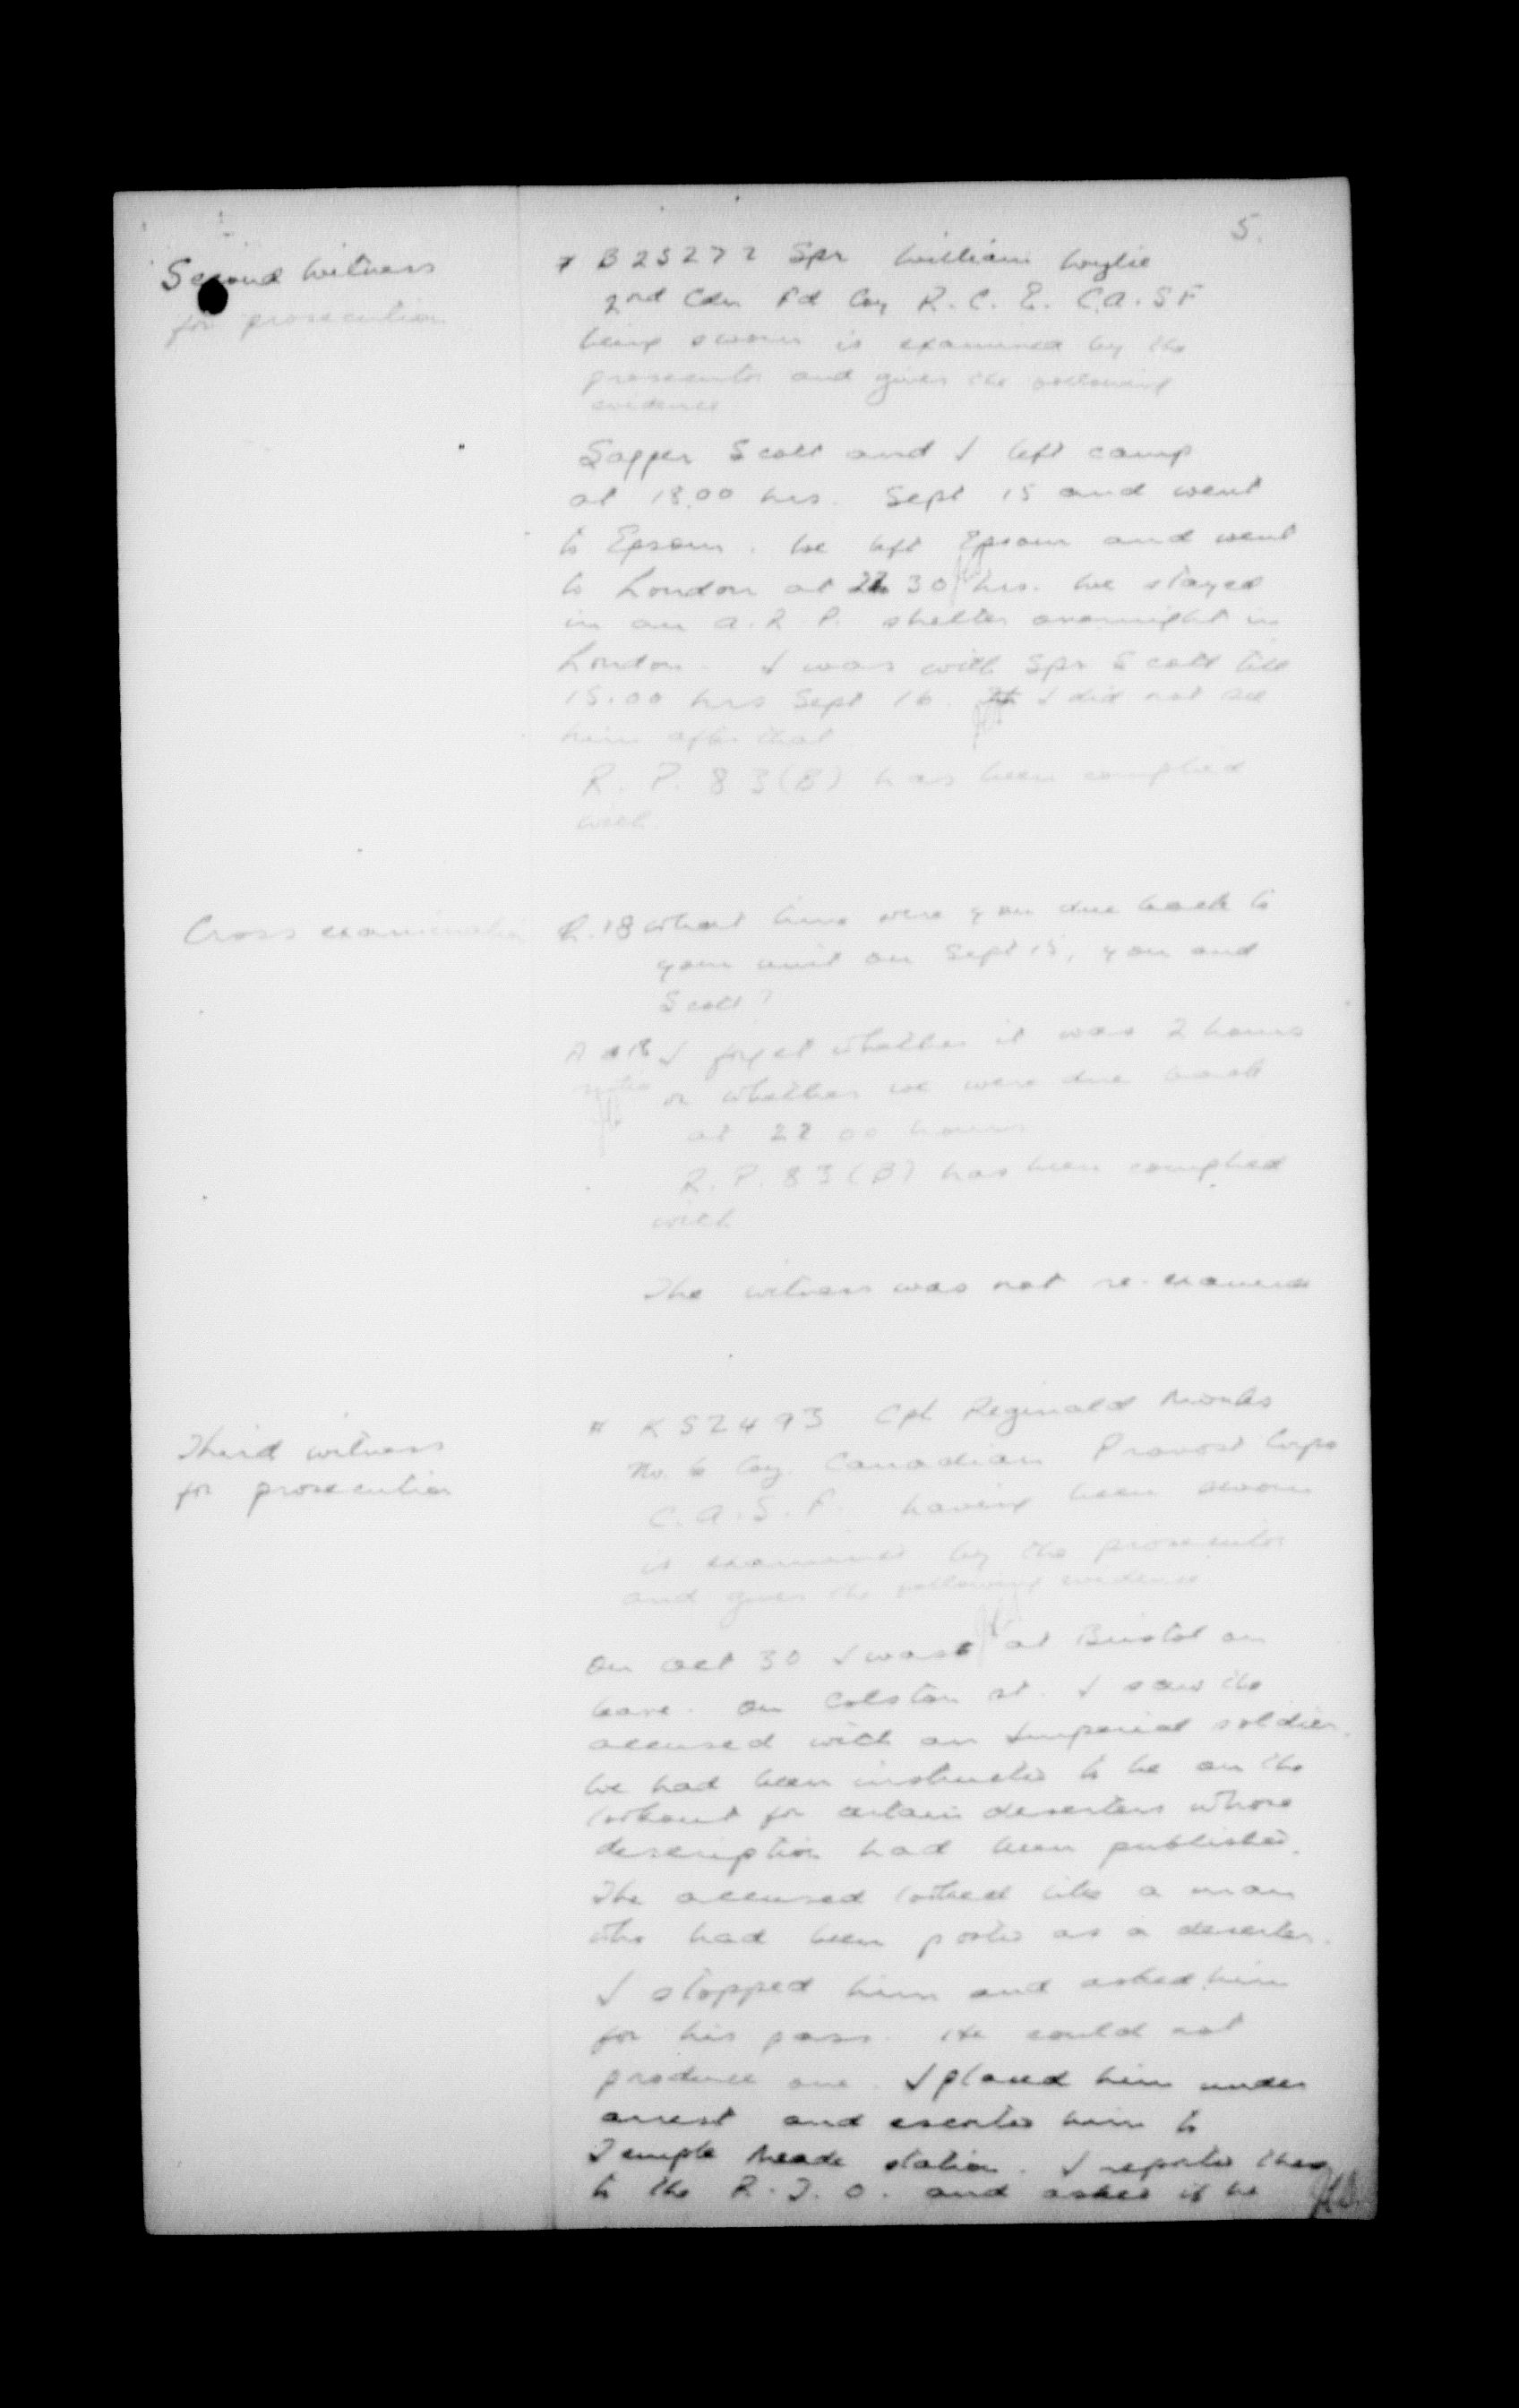 5.
Second Witness
for prosecution
# B25272 Spr William Wylie
2nd Cdn Fd Coy R.C.E. C.A.S.F
being sworn is examined by the
prosecutor and gives the following
evidence
Sapper Scott and I left camp
at 18.00 hrs. Sept 15 and went
to Epsom. We left Epsom and went
to London at 30 hrs. We stayed
in an A.R.P. shelter overnight in
London. I was with Spr Scott till
15.00 hrs Sept 16. I did not see
him after that
R.P. 83(B) has been complied
with
Cross examination
Q.18 What time were you due back to
your unit on Sept 15, you and
Scott?
A 18 I forget whether it was 2 hours
or whether we were due back
at 22 00 hours
R.P. 83(B) has been complied
with
The witness was not re-examined
Third witness
for prosecution
# K52493 Cpl Reginald Monks
No. 6 Coy. Canadian Provost Corps
C.A.S.F. having been sworn
is examined by the prosecutor
and gives the following evidence
On Oct 30 I was at Bristol on
leave. On Colston st. I saw the
accused with an Imperial soldier.
We had been instructed to be on the
lookout for certain deserters whose
description had been published.
The accused looked like a man
who had been posted as a deserter.
I stopped him and asked him
for his pass. He could not
produce one. I placed him under
arrest and escorted him to
Temple Meade station. I reported there
to the R.T.O. and asked if he